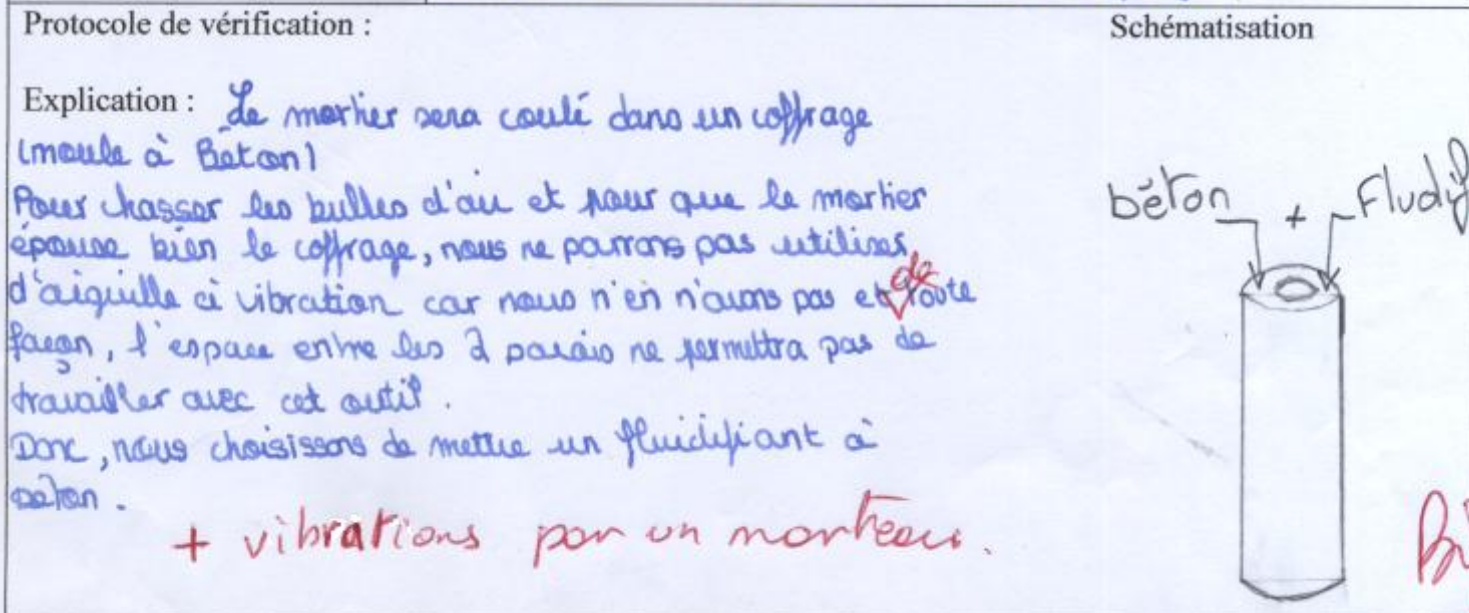 Protocole de vérification :
Schématisation
Explication : Le mortier sera coulé dans un coffrage
(moule à Beton)
Pour chasser les bulles d'air et pour que le mortier
épouse bien le coffrage, nous ne pourrons pas utiliser
d'aiguille à vibration car nous n'en n'avons pas et de toute
façon, l'espace entre les 2 parois ne permettra pas de
travailler avec cet outil.
Donc, nous choisissons de mettre un fluidifiant à
beton.
+ vibrations par un marteau.
béton + Fludif